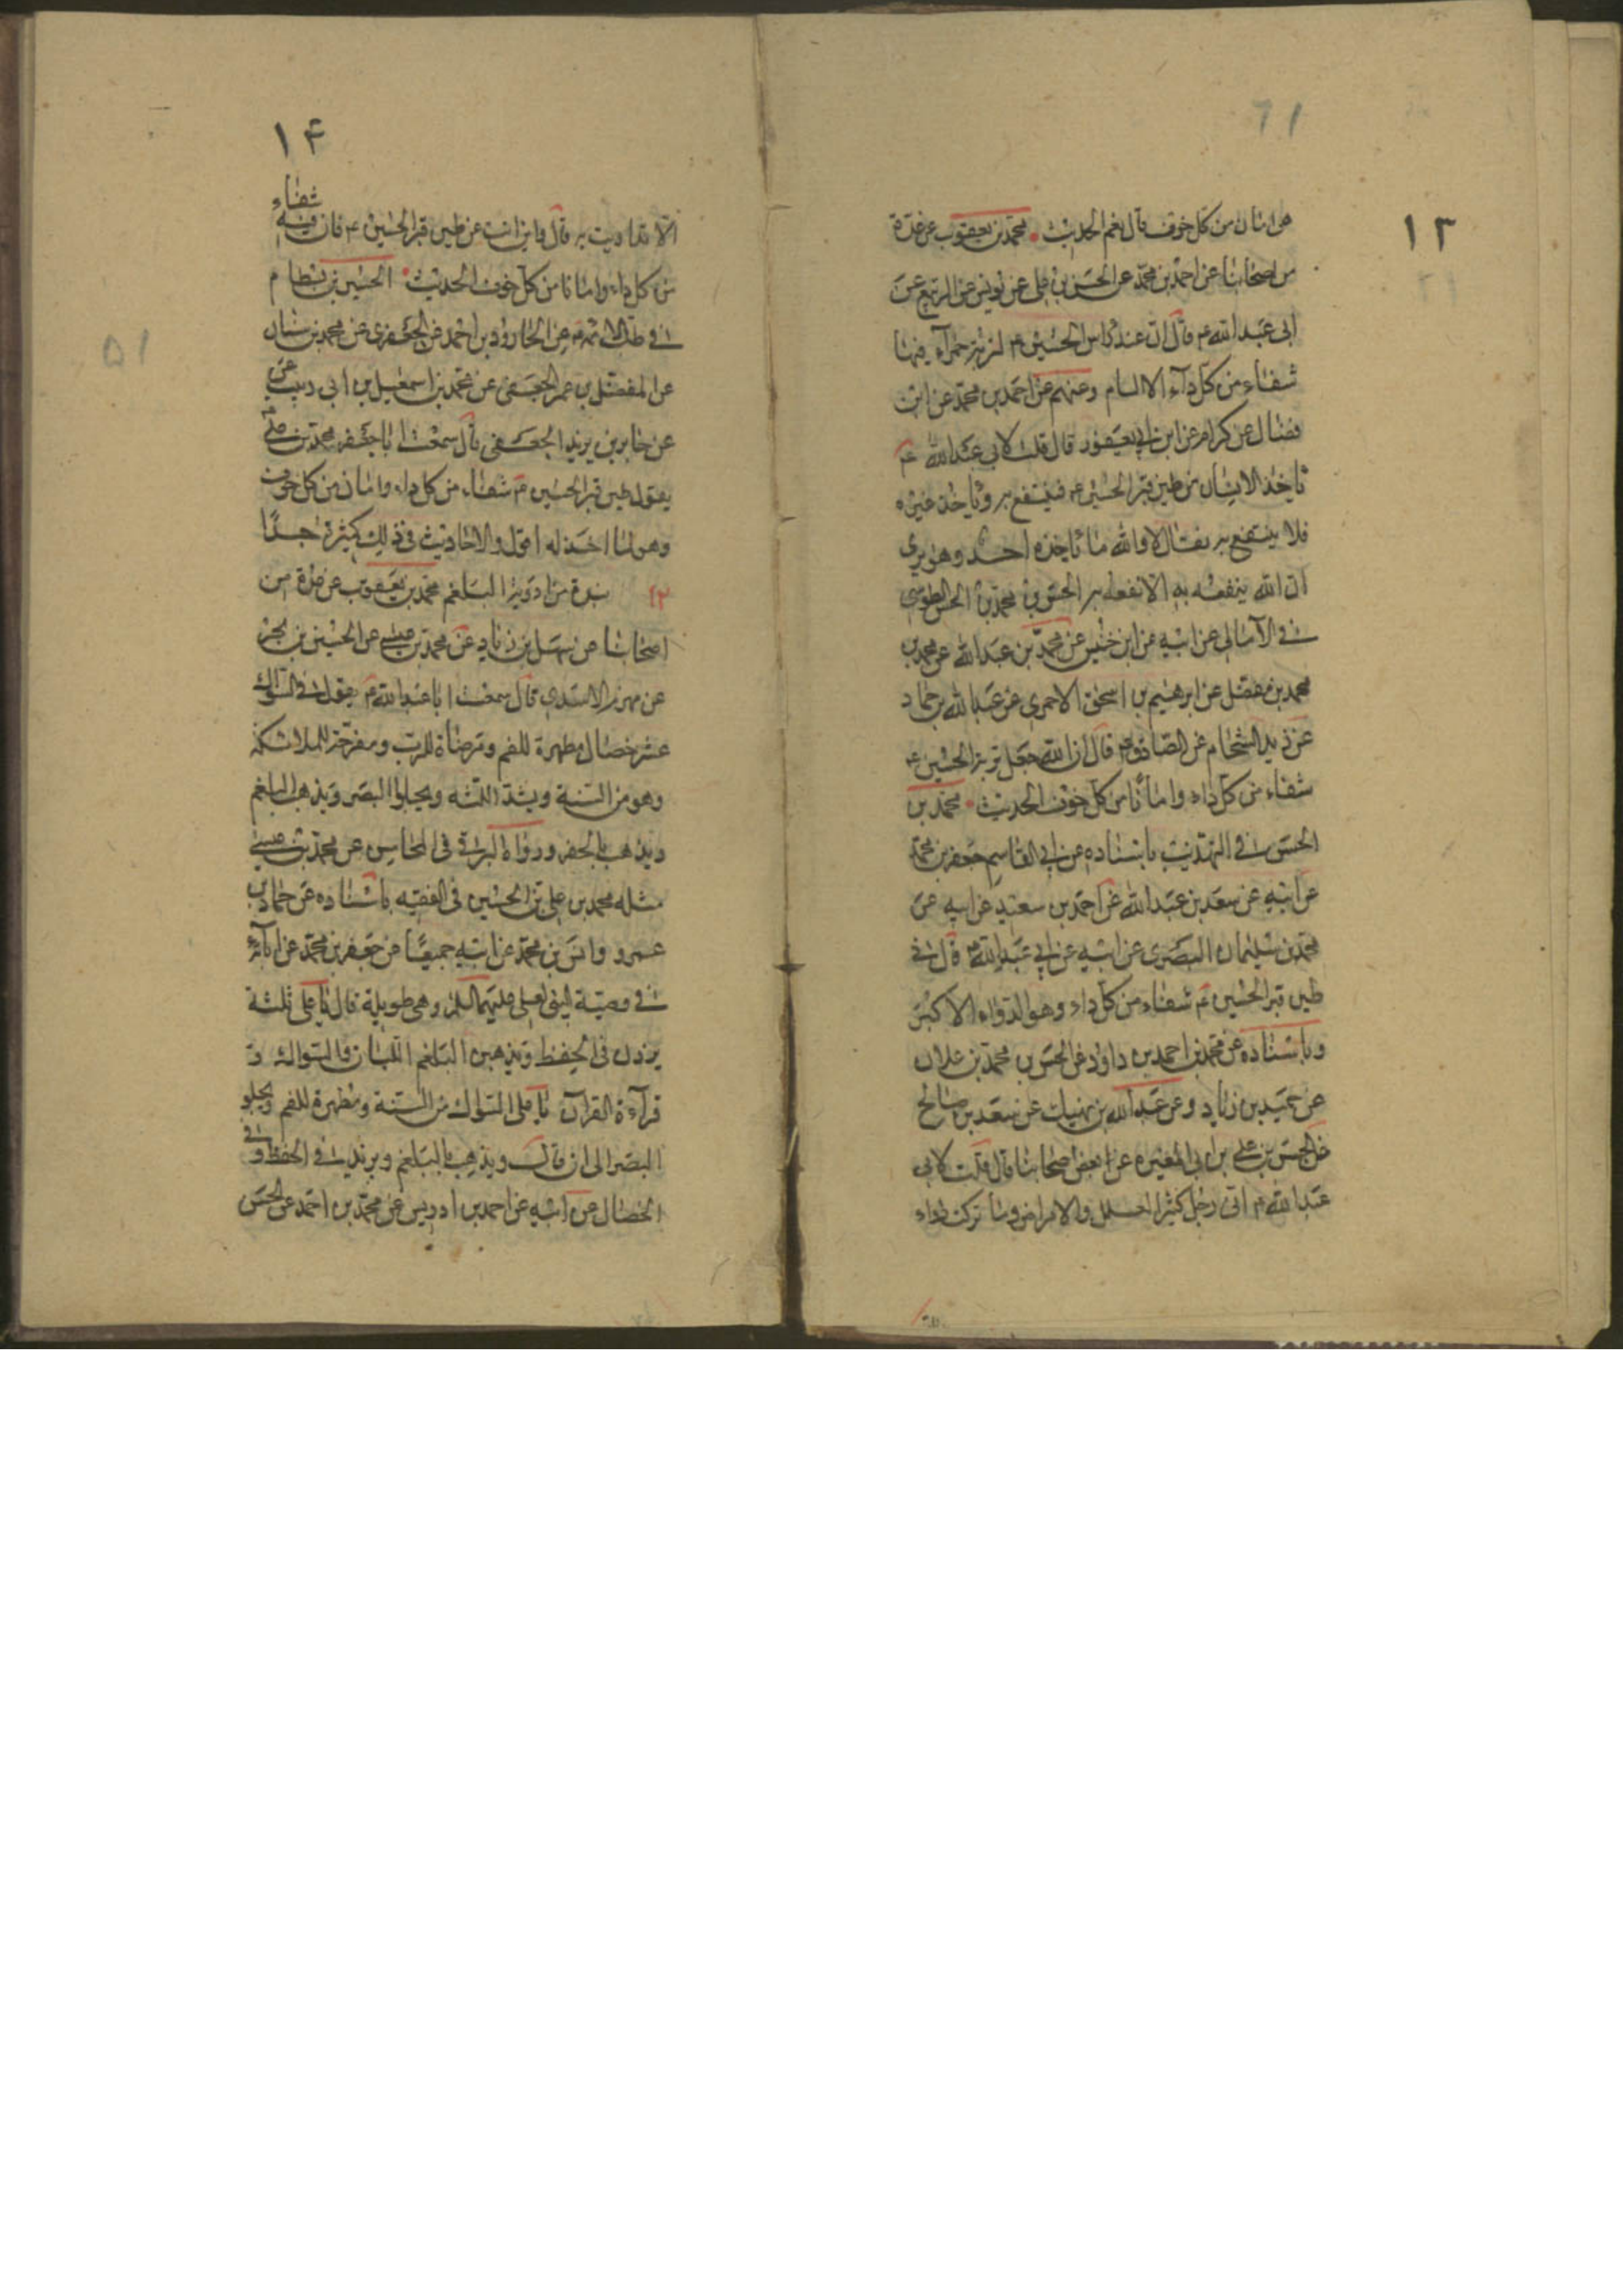 ١٣
هى امان من كل خوف قال نعم الحديث محمد بن يعقوب عن عدة
من اصحابنا عن احمد بن محمد عن الحسن بن على عن يونس عن الربيع عن
ابى عبد الله ع قال ان عند راس الحسين ع لتربة حمرآء فيها
شفاء من كل دآء الا السام وعنهم عن احمد بن محمد عن ابن
فضال عن كرام عن ابن ابى يعفور قال قلت لابى عبد الله ع
ياخذ الانسان من طين قبر الحسين ع فينتفع به وياخذ غيره
فلا ينتفع به فقال لا والله ما ياخذه احد وهو يرى
ان الله ينفعه به الا نفعه به الحسن بن محمد بن الحسن الطوسى
فى الآمالى عن ابيه عن ابن خنيس عن محمد بن عبد الله عن محمد بن
محمد بن مفضل عن ابرهيم بن اسحق الاحمرى عن عبد الله بن حماد
عن زيد الشحام عن الصادق ع قال ان الله جعل تربة الحسين ع
شفاء من كل داء وامانا من كل خوف الحديث محمد بن
الحسن فى التهذيب باسناده عن ابى القاسم جعفر بن محمد
عن ابيه عن سعد بن عبد الله عن احمد بن سعيد عن ابيه عن
محمد بن سليمان البصرى عن ابيه عن ابى عبد الله ع قال فى
طين قبر الحسين ع شفاء من كل داء وهو الدواء الاكبر
وباسناده عن محمد بن احمد بن داود عن الحسن بن محمد بن علان
عن حميد بن زياد وعن عبد الله بن نهيك عن سعد بن صالح
عن الحسن بن على بن ابى المغيره عن بعض اصحابنا قال قلت لابى
عبد الله ع انى رجل كثير العلل والامراض وما تركت دواء
١۴
الا تداويت به قال واين انت عن طين قبر الحسين ع فان فيه شفاء
من كل داء وامانا من كل خوف الحديث الحسين بن بسطام
فى طب الائمه ع عن الجارود بن احمد عن الجعفرى عن محمد بن سنان
عن المفضل بن عمر الجعفى عن محمد بن اسمعيل بن ابى زينب
عن جابر بن يزيد الجعفى قال سمعت ابا جعفر محمد بن على ع
يقول طين قبر الحسين ع شفاء من كل داء وامان من كل خوف
وهو لما اخذ له اقول والاحاديث فى ذلك كثيرة جدا
١٢ نبذة من ادوية البلغم محمد بن يعقوب عن عدة من
اصحابنا عن سهل بن زياد عن محمد بن عيسى عن الحسين بن بحر
عن مهزم الاسدى قال سمعت ابا عبد الله ع يقول فى السواك
عشر خصال مطهرة للفم ومرضاة للرب ومفرحة للملائكة
وهو من السنة ويشد اللثه ويجلوا البصر ويذهب البلغم
ويذهب بالحفر ورواه البرقى فى المحاسن عن محمد بن عيسى
مثله محمد بن على بن الحسين فى الفقيه باسناده عن حماد بن
عمرو وانس بن محمد عن ابيه جميعا عن جعفر بن محمد عن آبائه
فى وصية النبى لعلى عليهما السلم وهى طويلة قال يا على ثلثة
يزدن فى الحفظ ويذهبن البلغم اللبان والسواك و
قرآءة القرآن يا على السواك من السنة ومطهرة للفم ويجلو
البصر الى ان قال ويذهب بالبلغم ويزيد فى الحفظ وفى
الخصال عن ابيه عن احمد بن ادريس عن محمد بن احمد عن الحسن